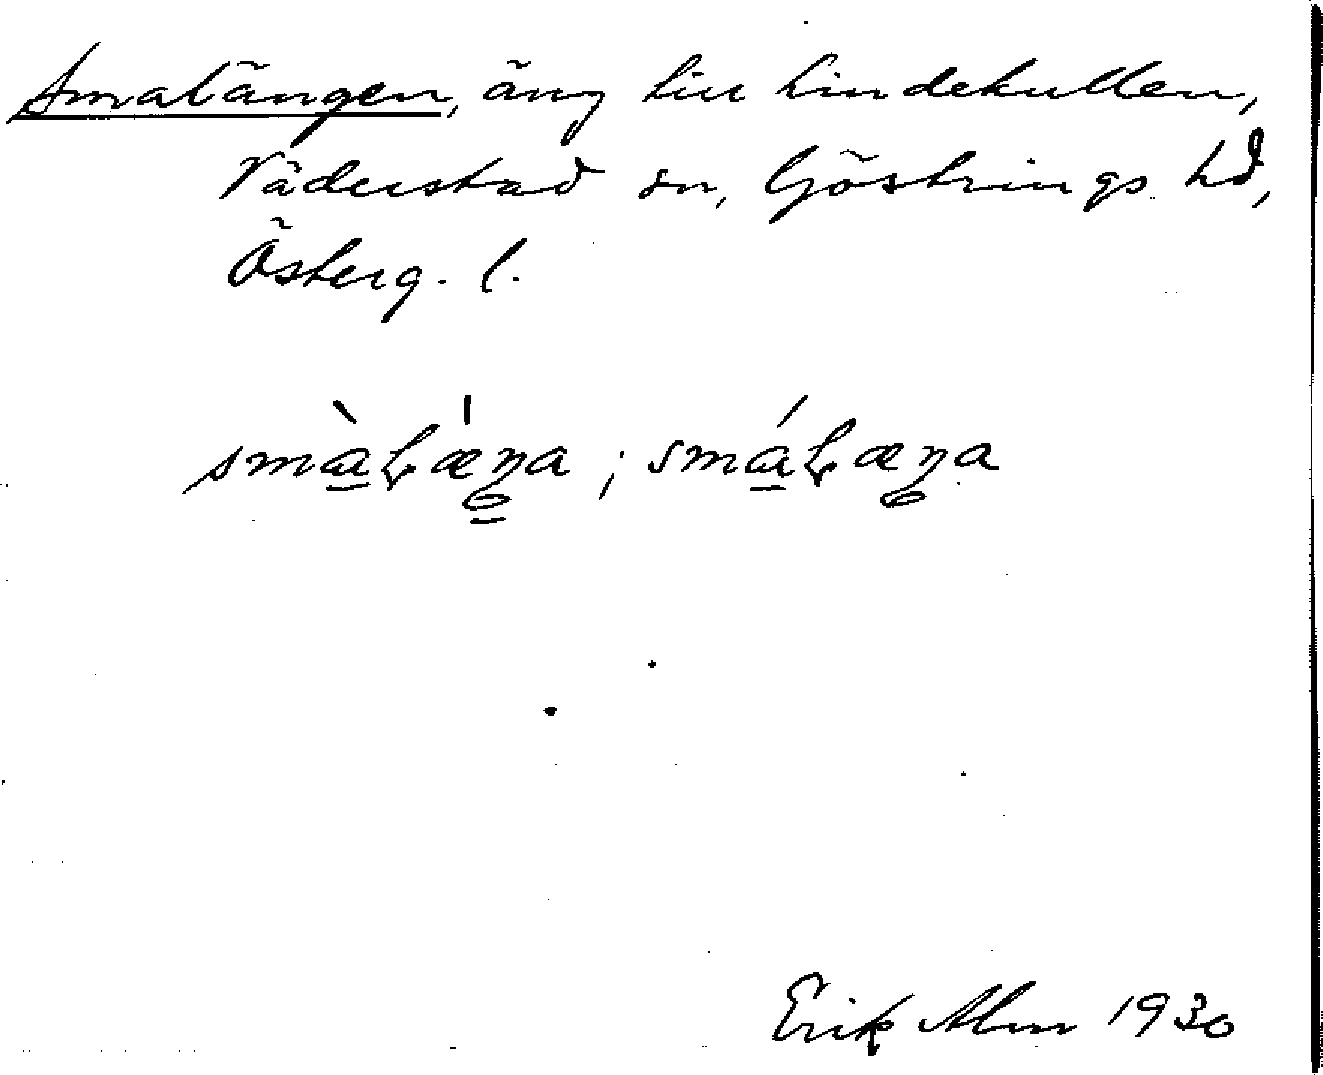 Smalängen, äng till Lindekullen,
Väderstad sn, Göstrings hd,
Österg. l.
smàlæ̀ŋa ; smálæŋa
Erik Alm 1930